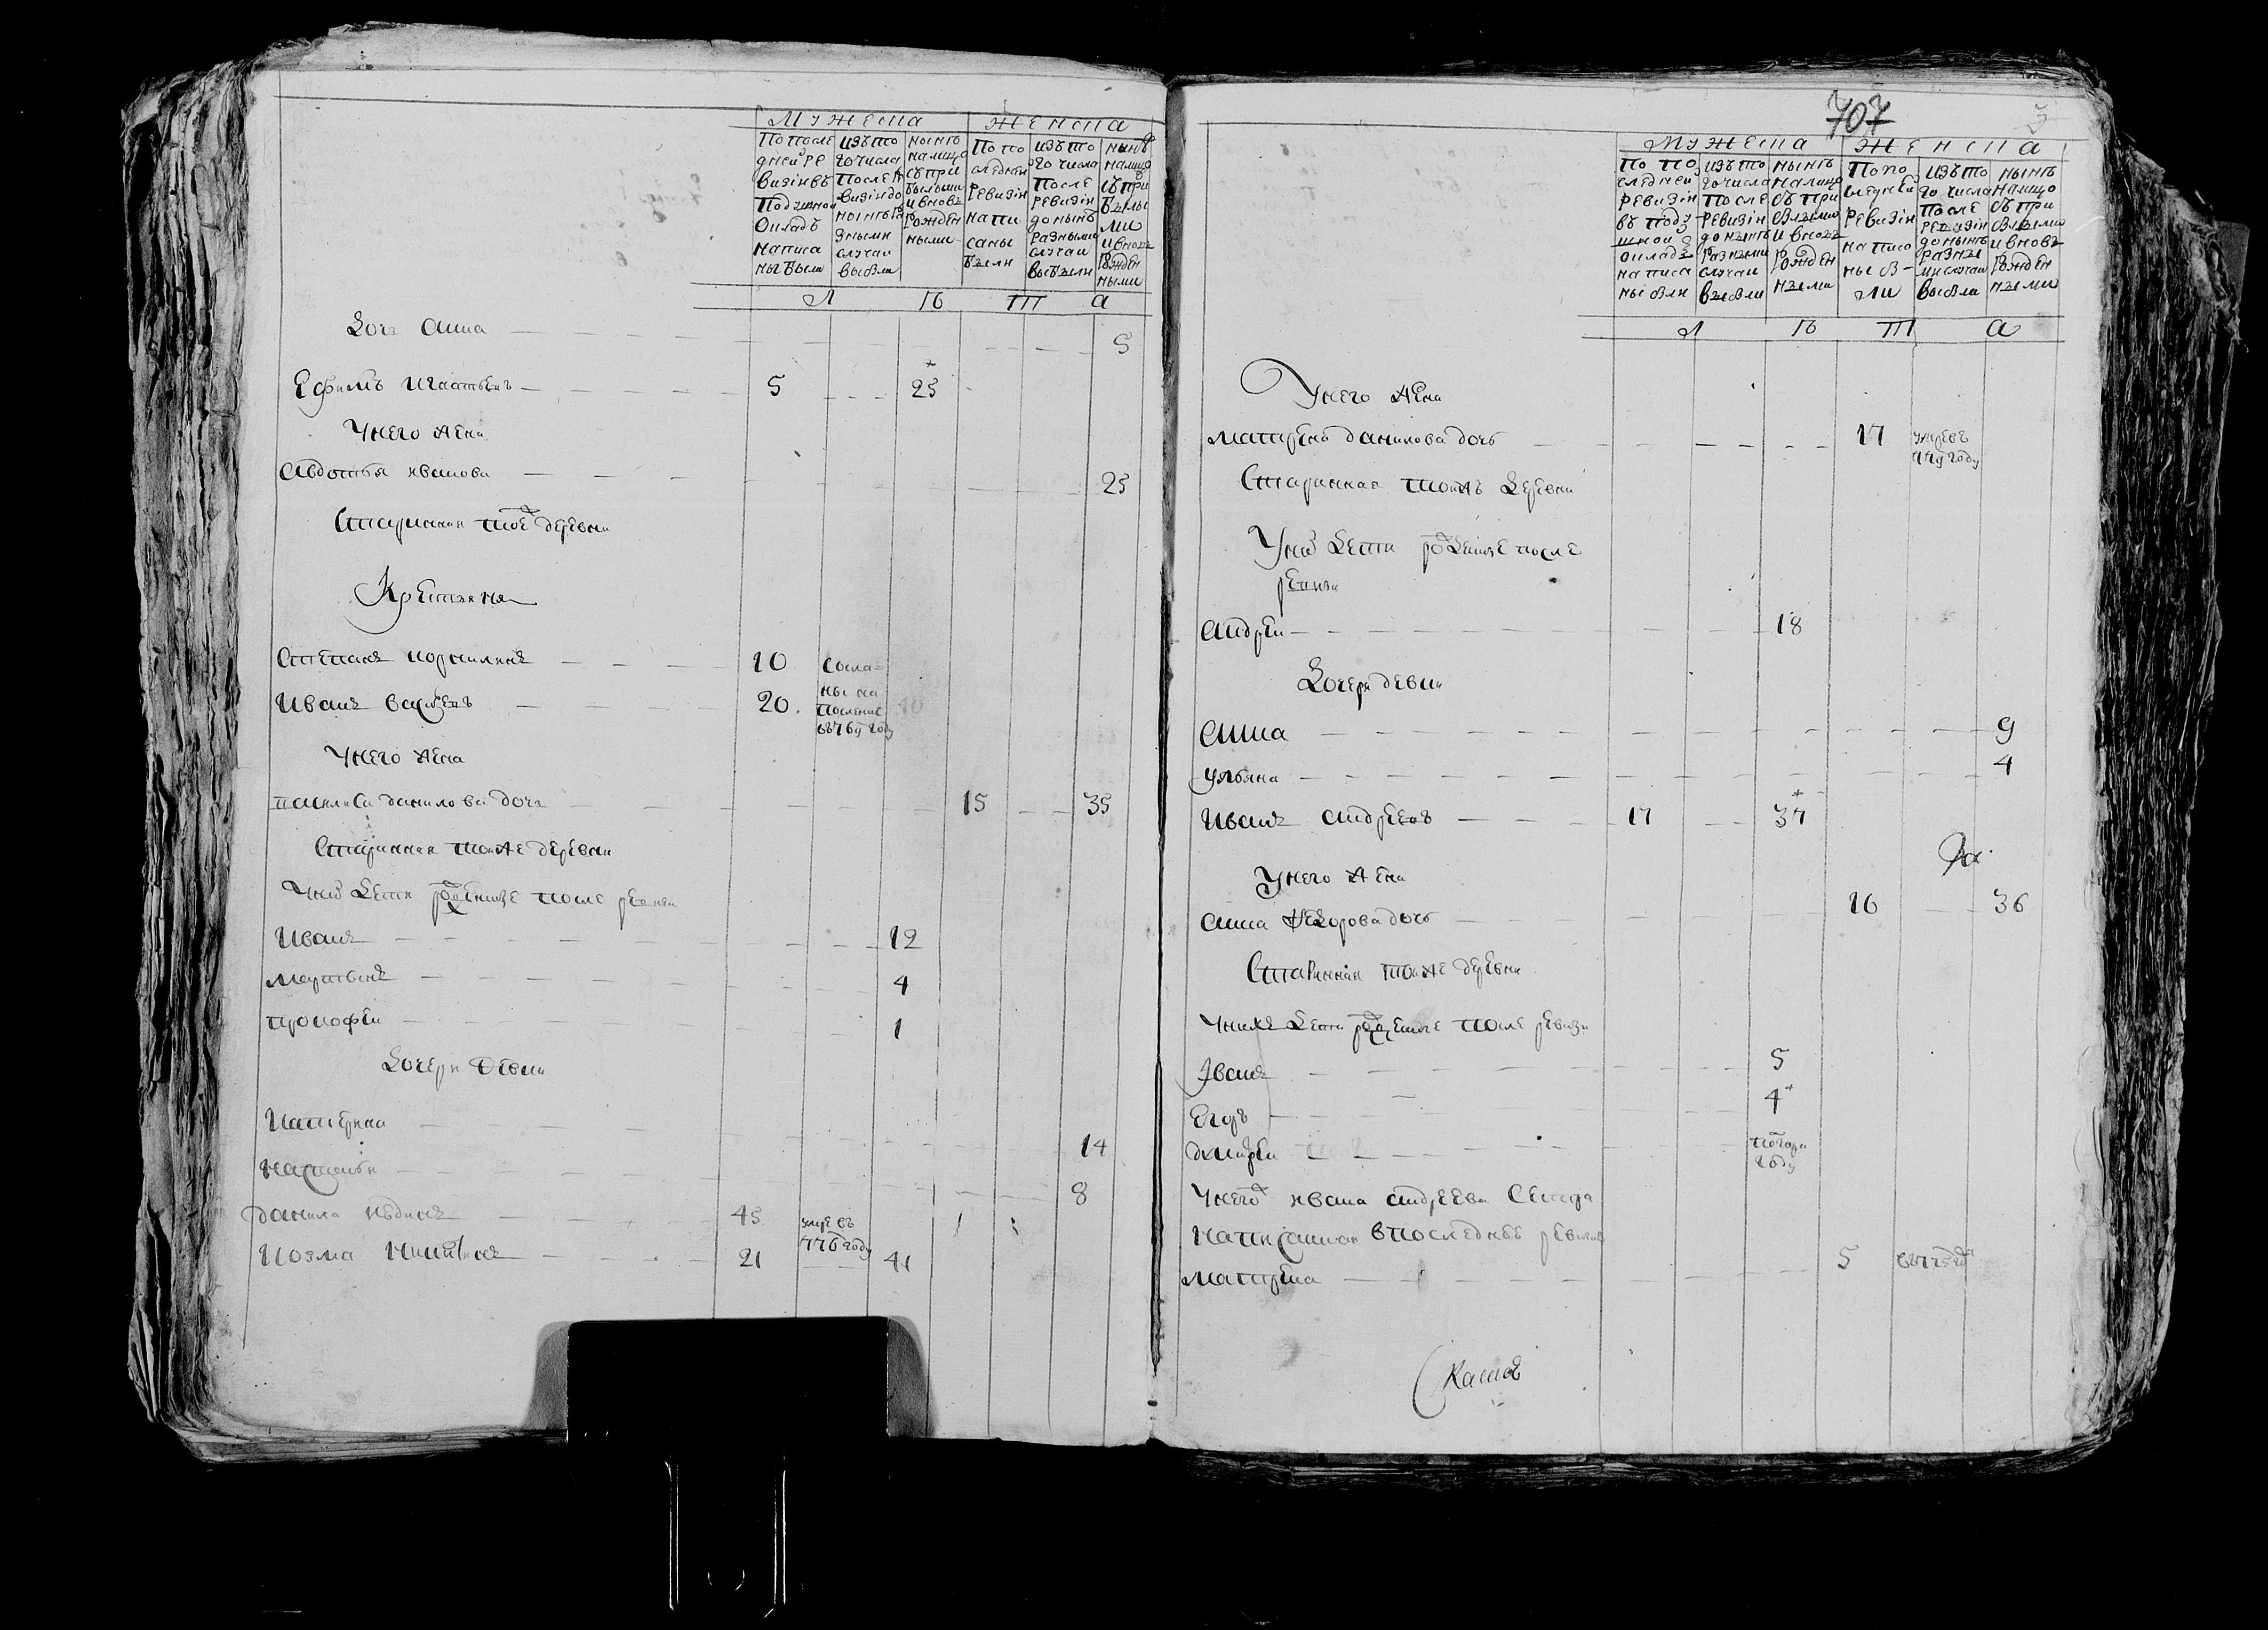 Мужеска
Женска
По после
дней ре
визін въ
подушной
окладъ
написа
ны были
изъ то
го числа
после ре
визін до
нынѣ ра
зными
случаи
выбыли
нынѣ
налицо
съ при
былыми
и вновь
рожден
ными
По по
следней
ревизін
напи
саны
были
изъ то
го числа
после
ревизін
до нынѣ
разными
случаи
выбыли
нынѣ
налицо
съ при
былы
ми
и вновь
рожден
ными
Л ѣ т а
Дочь Анна 5
Ефимъ 5 25
У него жена
Авдотья Иванова 25
Старинная той деревни
Крестьяня
Степанъ 10 Сосла
Иванъ 20 ны на
поселение
въ 769 году
У него жена
Данилова дочь 15 35
Старинная той же деревни
У них дети рожденные после ревизи
Иванъ 12
Мартынъ 4
Прокофей 1
Дочери девки
Катерина 14
Наталья 8
Данила 45 умре въ
776 году
Козма Никитинъ 21 41
707
Мужеска
Женска
По по
следней
ревизін
въ поду
шной
окладъ
написа
ны бли
изъ то
го числа
после
ревизін
до нынѣ
разными
случаи
выбли
нынѣ
налицо
съ при
былыми
и вновь
рожден
ными
По по
следней
ревизін
написа
ны б
ли
изъ то
го числа
после
ревизін
до нынѣ
разны
ми случаи
выбла
нынѣ
налицо
съ при
былыми
и вновь
рожден
ными
Л ѣ т а
У него жена
Матрена Данилова дочь 17 умре въ
779 году
Старинная той жъ деревни
У них дети рожденные после
ревизи
Андрей 18
Дочери девки
Анна 9
Ульяна 4
Иванъ Андреевъ 17 37
У него жена
Анна Федорова дочь 16 36
Старинная той же деревни
У нихъ дети рожденные после ревизи
Іванъ 5
Егоръ 4
Андрей полтара
году
У него Ивана Андреева сестра
написанная в последнеѣ ревизіи
Матрена 5